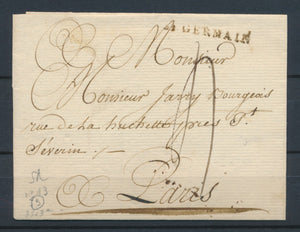 St GERMAIN
A Monsieur
Monsieur Jarry Bourgeois
rue de La huchette pres St
Séverin ./.
Paris